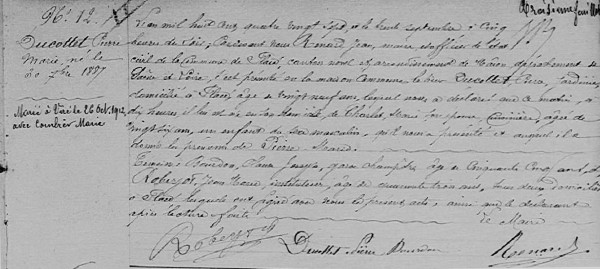 N°. 12.
Ducollet Pierre
Marie, né le
30 7bre 1887
Marié à Viré le 26 Oct. 1912
avec Combier Marie
Troisième feuillet
L'an mil huit cent quatre vingt sept et le trente septembre à cinq
heures du soir, Pardevant nous Renard, Jean, maire et officier de l'état
civil de la commune de Flacé, canton nord et arrondissement de Mâcon, département de
Saône & Loire, s'est présenté en la maison Commune, le sieur Ducollet Pierre, jardinier,
domicilié à Flacé, âgé de vingt neuf ans, lequel nous a déclaré que ce matin, à
dix heures, il lui est né en son domicile, de Charlet, Marie son épouse, âgée de
vingt six ans, un enfant du sexe masculin, qu'il nous a présenté et auquel il a
donné les prénoms de Pierre Marie.
Témoins: Bourdon, Claude Joseph, garde champêtre, âgé de cinquante cinq ans, et
Roberjot, Jean Marie, instituteur, âgé de ans, tous deux domiciliés
à Flacé lesquels ont signé avec nous le présent acte, ainsi que le déclarant
après lecture faite.
Le Maire
Roberjot
Ducollet Pierre
Bourdon
Renard